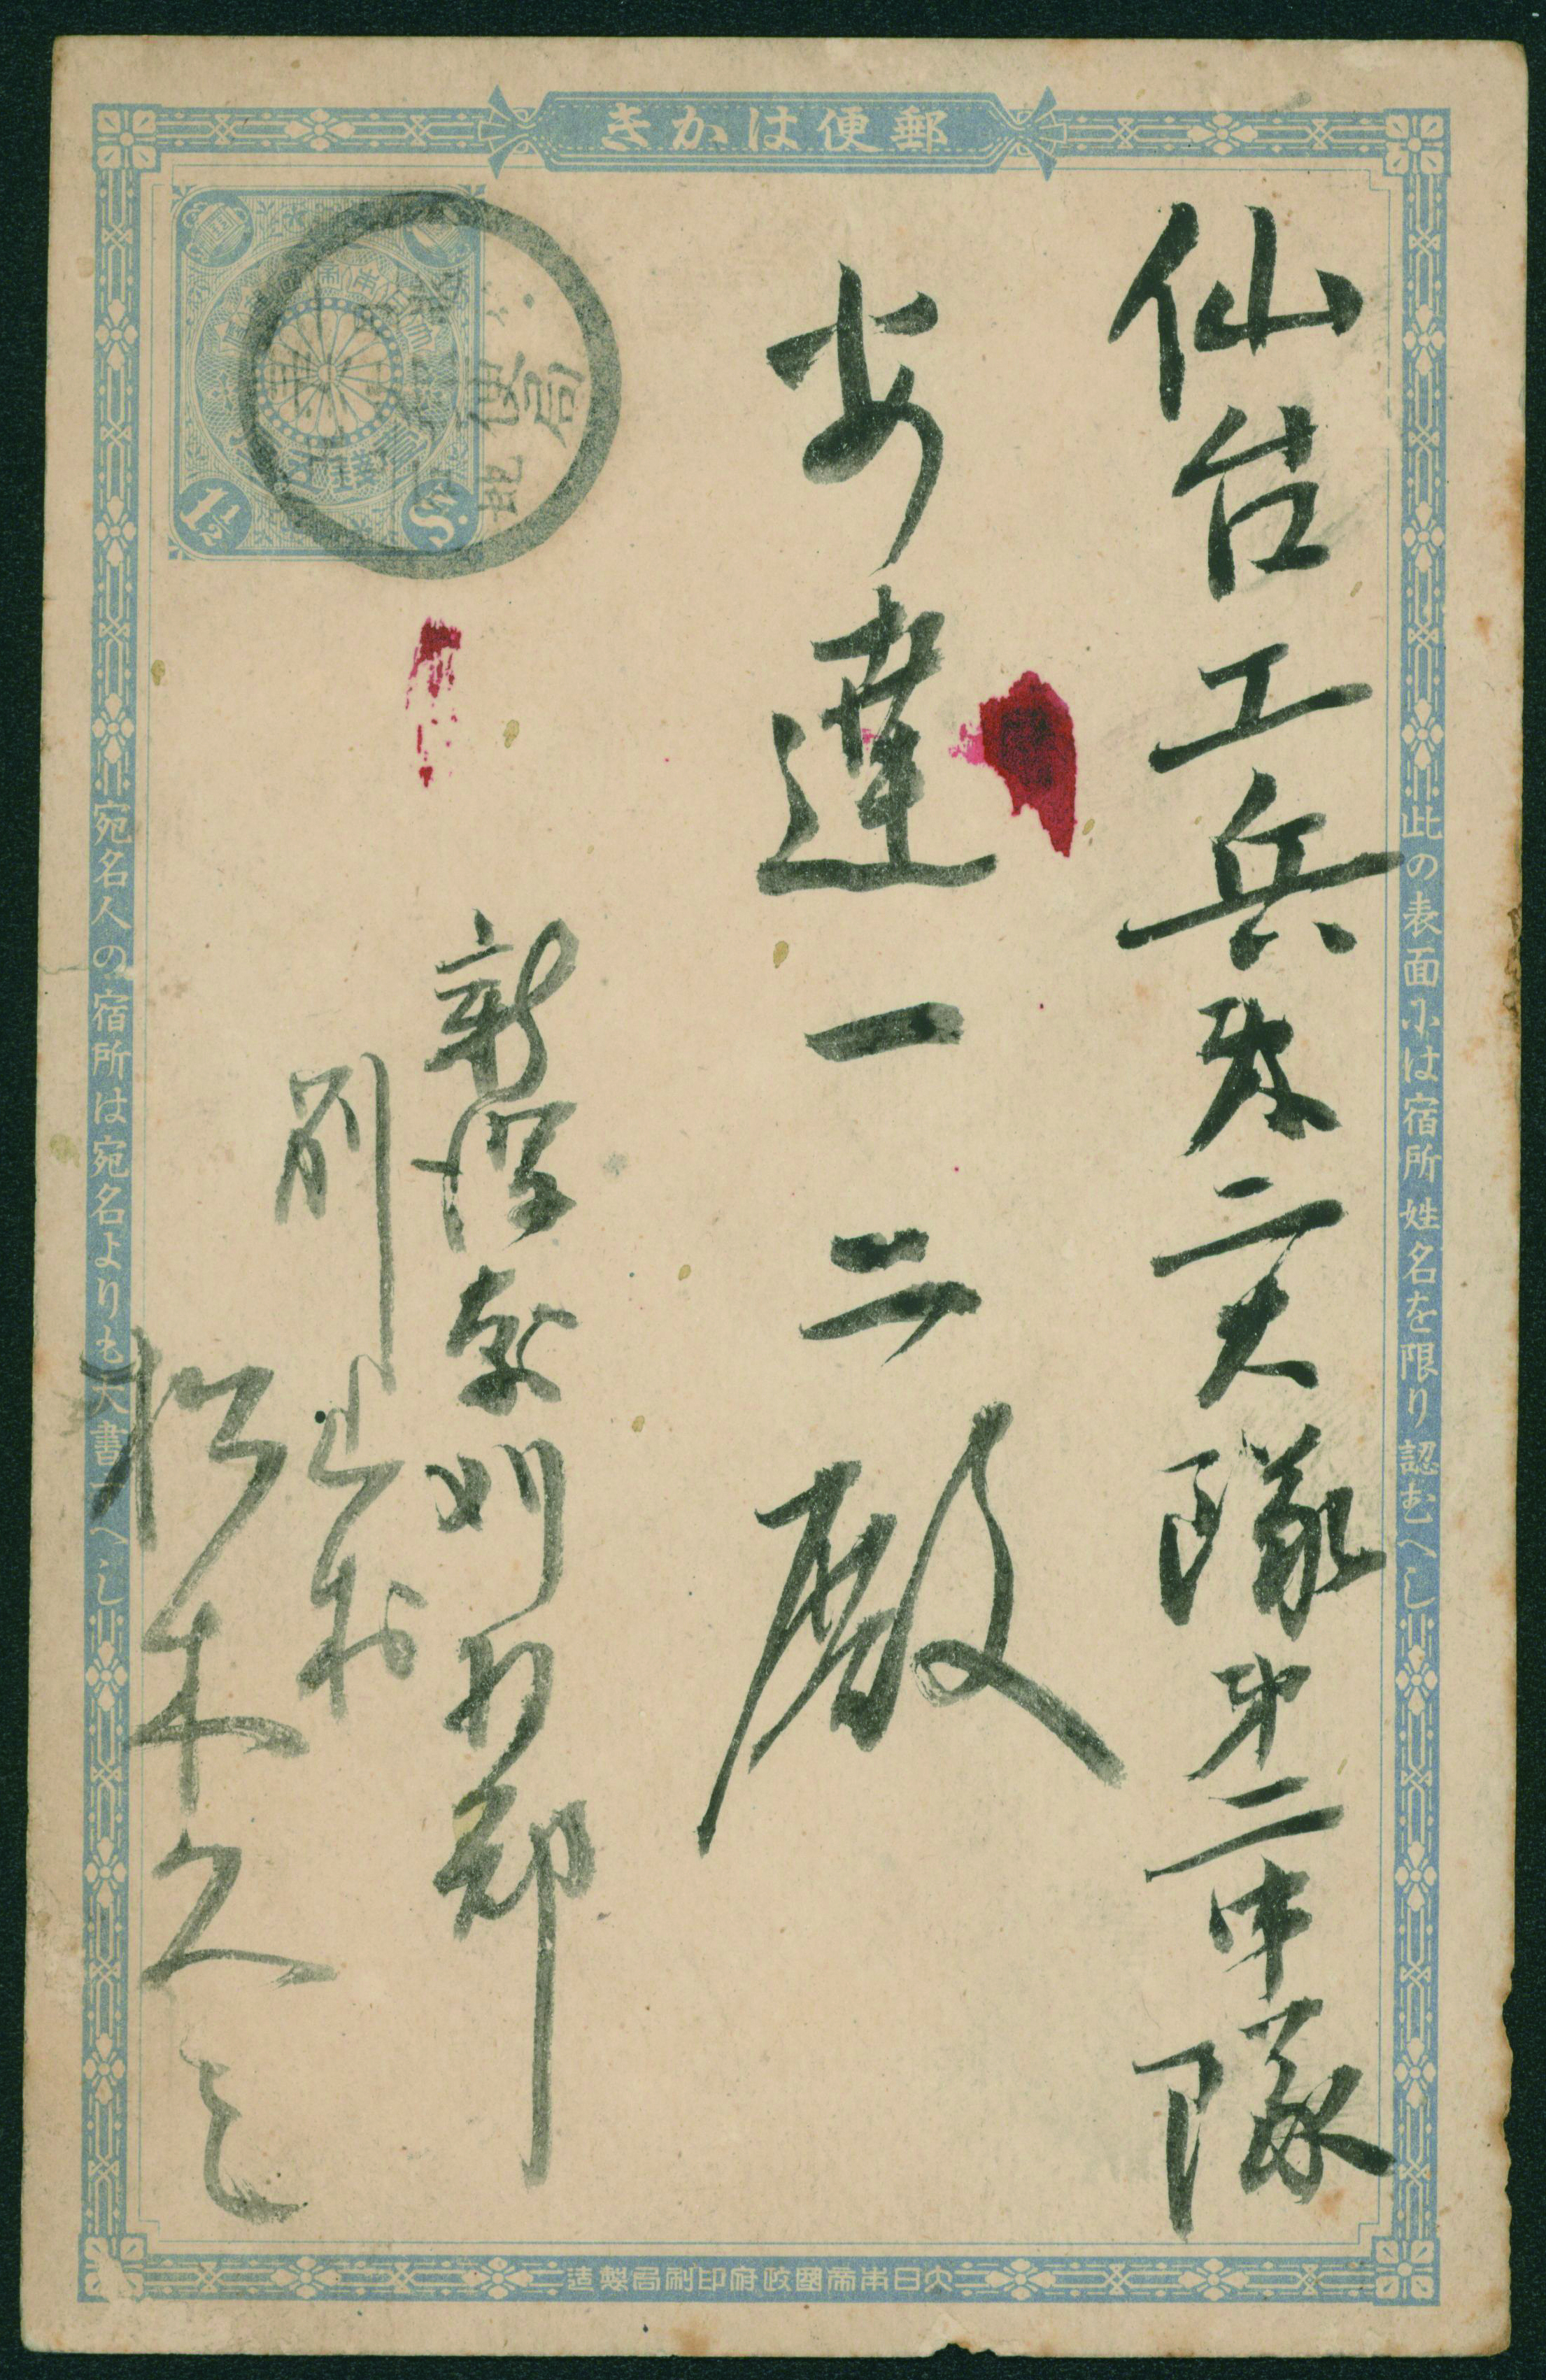 郵便はかき
此の表面には宿所姓名を限り認むへし
仙台工兵第二大隊第二中隊
安達一二殿
新潟県刈羽郡
別山村
松木久
宛名人の宿所は宛名よりも大書すへし
1½ Sn.
便局
大日本帝國政府印刷局製造